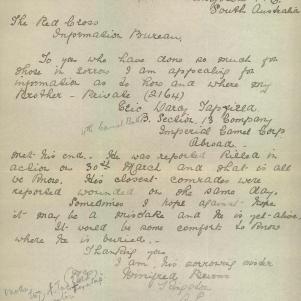 South Australia
The Red Cross
Information Bureau,
To you who have done so much for
those in sorrow I am appealing for
information as to how and where my
Brother - Private (2164)
Eric Darcy
B. Section 13 Company
Imperial Camel Corp
Abroad -
met his end. He was reported killed in
action on 30th March and that is all
we know. His closest comrades were
reported wounded on the same day.
Sometimes I hope against hope
it may be a mistake and he is yet alive.
It would be some comfort to know
where he is buried.-
Thanking you
I am, his sorrowing sister
Winifred